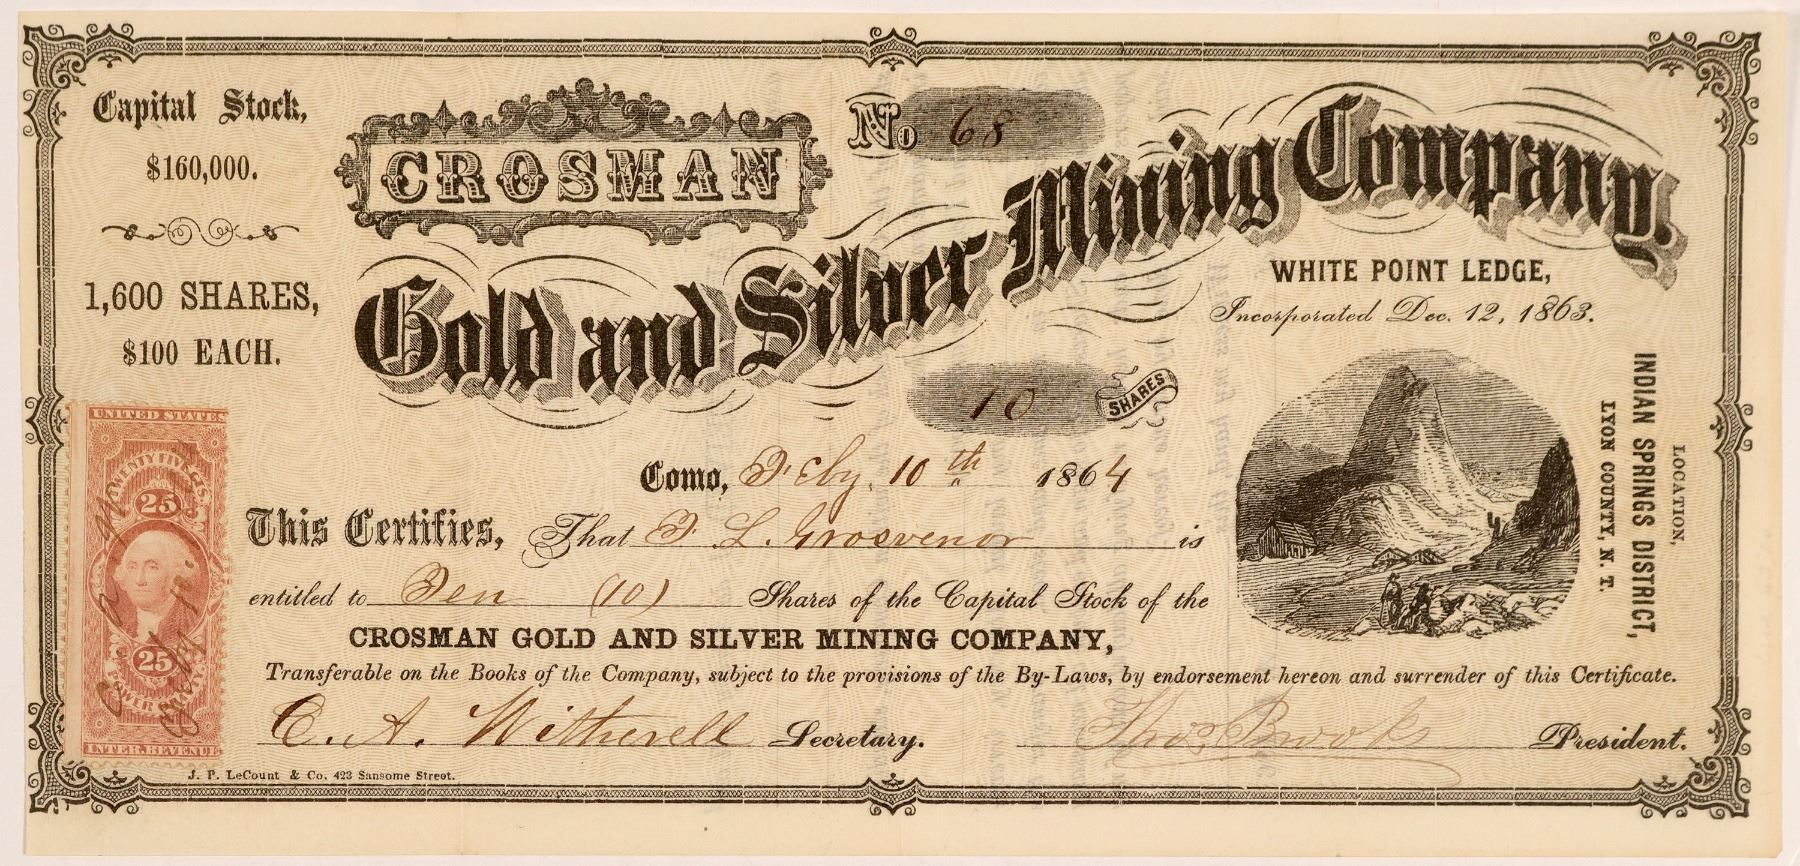 Capital Stock,
$160,000.
1,600 SHARES,
$100 EACH.
CROSMAN
No 68
Gold and Silver Mining Company.
WHITE POINT LEDGE,
Incorporated Dec. 12, 1863.
10 SHARES
LOCATION,
INDIAN SPRINGS DISTRICT,
LYON COUNTY, N. T.
Como, Feby. 10th 1864
This Certifies, That F. L. Grosvenor is
entitled to Ten (10) Shares of the Capital Stock of the
CROSMAN GOLD AND SILVER MINING COMPANY,
Transferable on the Books of the Company, subject to the provisions of the By-Laws, by endorsement hereon and surrender of this Certificate.
C. A. Witherell Secretary.
Thos Brooks President.
J. P. LeCount & Co. 423 Sansome Street.
UNITED STATES
TWENTY FIVE CTS
25
25
POWER OF ATT'Y
INTER. REVENUE